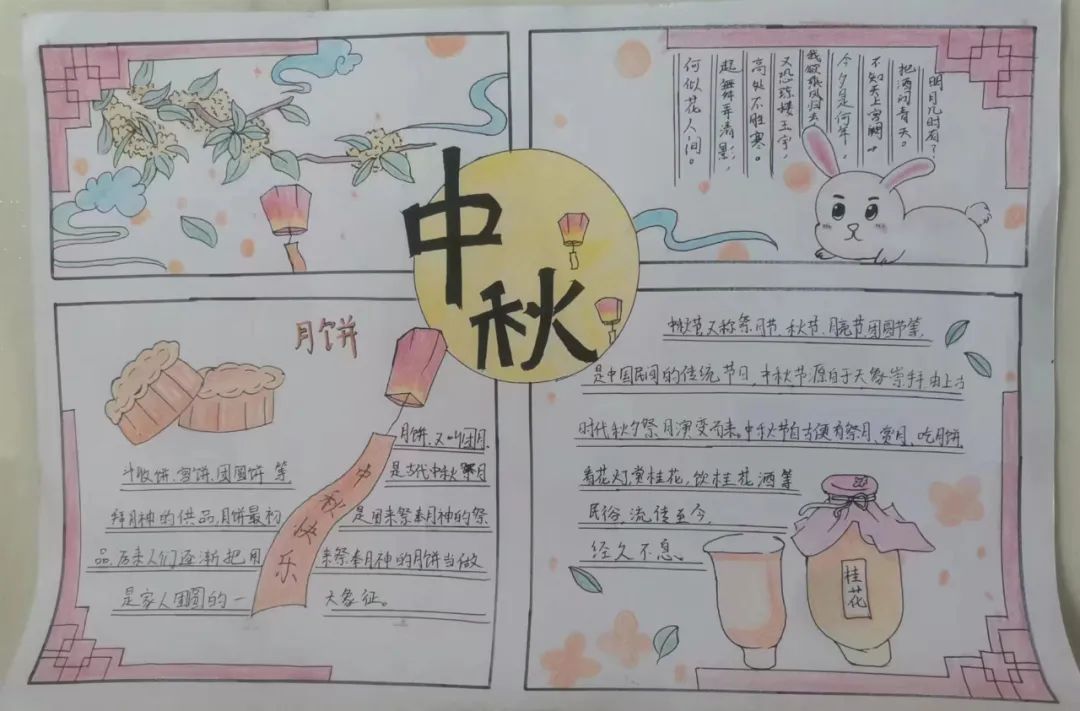 中秋
明月几时有？
把酒问青天。
不知天上宫阙，
今夕是何年。
我欲乘风归去，
又恐琼楼玉宇，
高处不胜寒。
起舞弄清影，
何似花人间。
月饼
月饼、又叫团月、
斗收饼、宫饼、团圆饼 等 是古代中秋祭月
拜月神的供品,月饼最初 是用来祭奉月神的祭
品,历来人们逐渐把用 来祭奉月神的月饼当做
是家人团圆的一 大象征。
中秋快乐
中秋节又称祭月节、秋节、月亮节、团圆节等,
是中国民间的传统节日,中秋节源自于天象崇拜,由上古
时代秋夕祭月演变而来。中秋节自古便有祭月、赏月、吃月饼
看花灯,赏桂花、饮桂花酒等
民俗,流传至今,
经久不息。
桂花